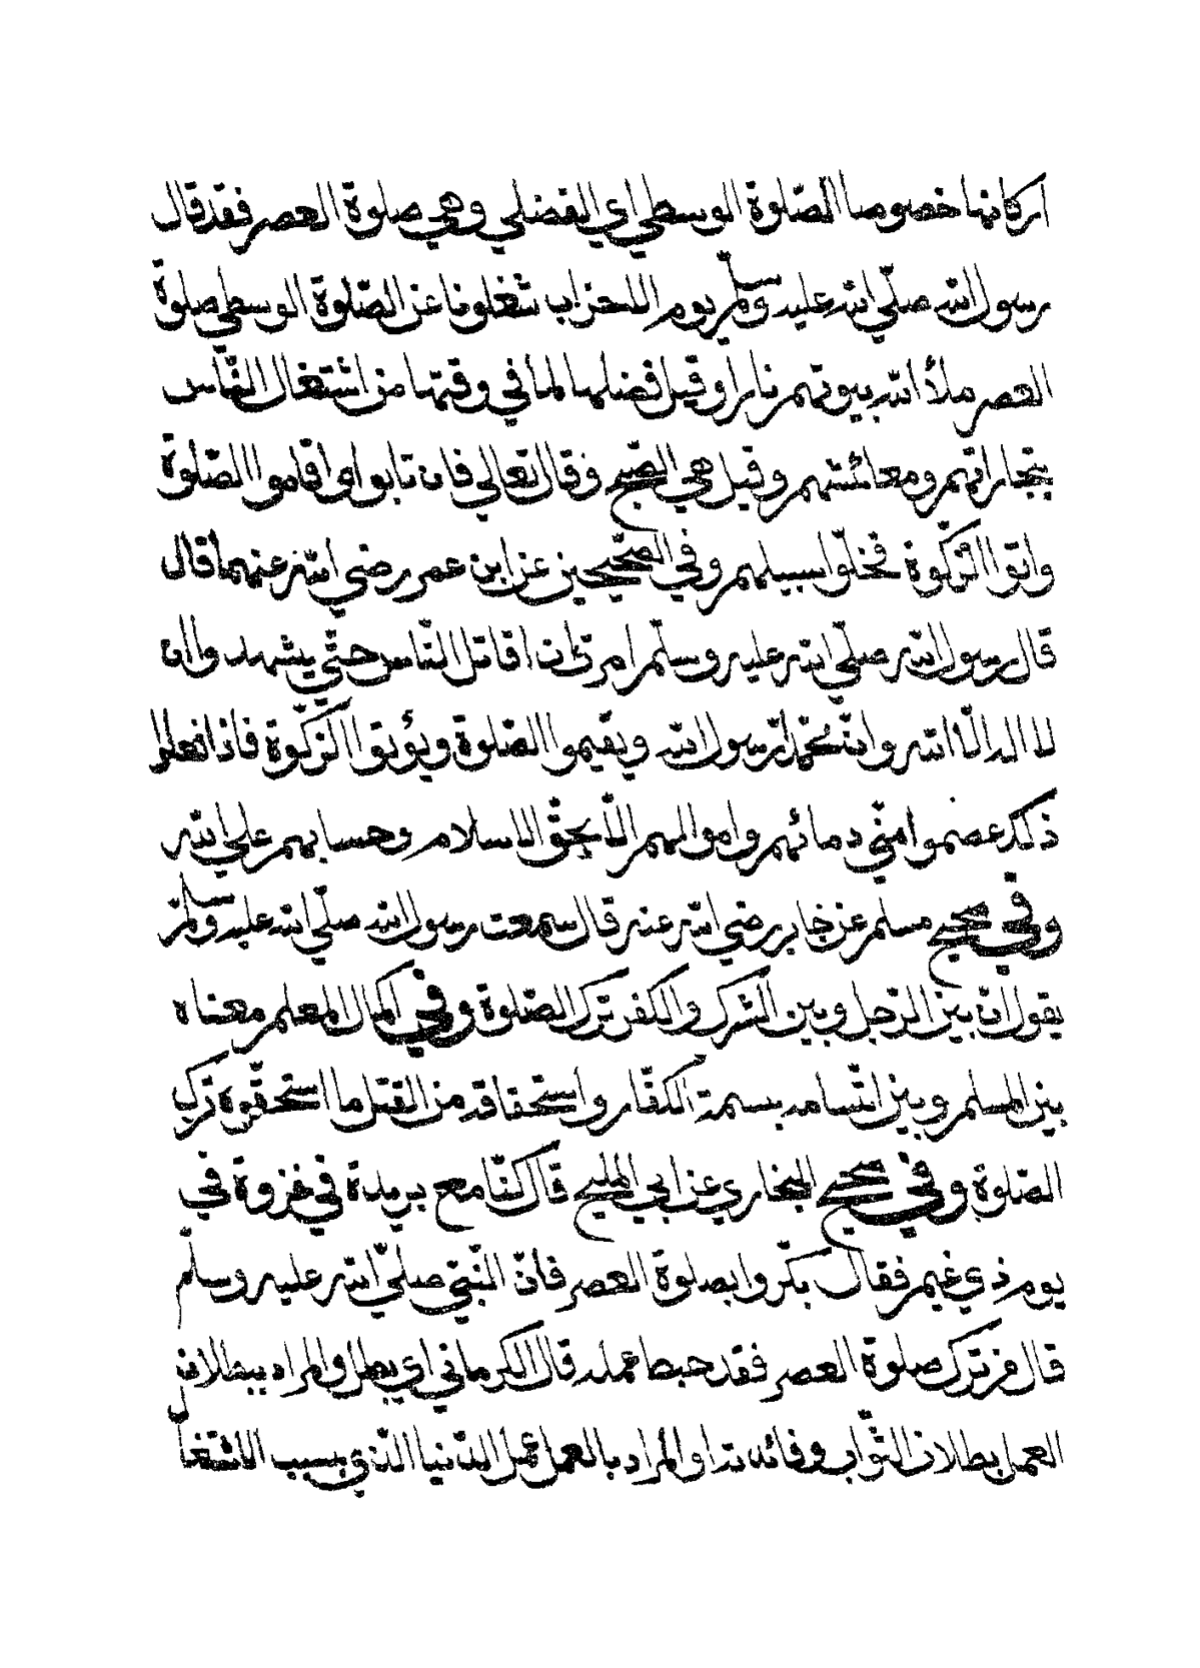 اركانها خصوصا الصّلوة الوسطي اي الفضلي وهي صلوة العصر فقد قال
رسول الله صلّي الله عليه وسلّم يوم الاحزاب شغلونا عن الصّلوة الوسطي صلوة
العصر ملأ الله بيوتهم نارا وقيل فضلها لما في وقتها من اشتغال النّاس
بتجاراتهم ومعائشهم وقيل هي الصّبح وقال تعالي فان تابوا واقاموا الصّلوة
واتوا الزّكوة فخلّوا سبيلهم وفي الصّحيحين عن ابن عمر رضي الله عنهما قال
قال رسول الله صلّي الله عليه وسلّم امرت ان اقاتل النّاس حتّي يشهدوا ان
لا اله الّا الله وانّ محمّدا رسول الله ويقيموا الصّلوة ويؤتوا الزّكوة فاذا فعلوا
ذلك عصموا منّي دمائهم واموالهم الّا بحقّ الاسلام وحسابهم علي الله
وفي صحيح مسلم عن جابر رضي الله عنه قال سمعت رسول الله صلّي الله عليه وسلّم
يقول انّ بين الرّجل وبين الشّرك والكفر ترك الصّلوة وفي اكمال المعلم معناه
بين المسلم وبين اتّسامه بسمة الكفّار واستحقاقه من القتل ما استحقّوه ترك
الصّلوة وفي صحيح البخاري عن ابي المليح قال كنّا مع بريدة في غزوة في
يوم ذي غيم فقال بكّروا بصلوة العصر فانّ النّبيّ صلّي الله عليه وسلّم
قال من ترك صلوة العصر فقد حبط عمله قال الكرماني اي بطل والمراد ببطلان
العمل بطلان الثّواب وفائدته او المراد بالعمل عمل الدّنيا الّذي بسبب الاشتغال